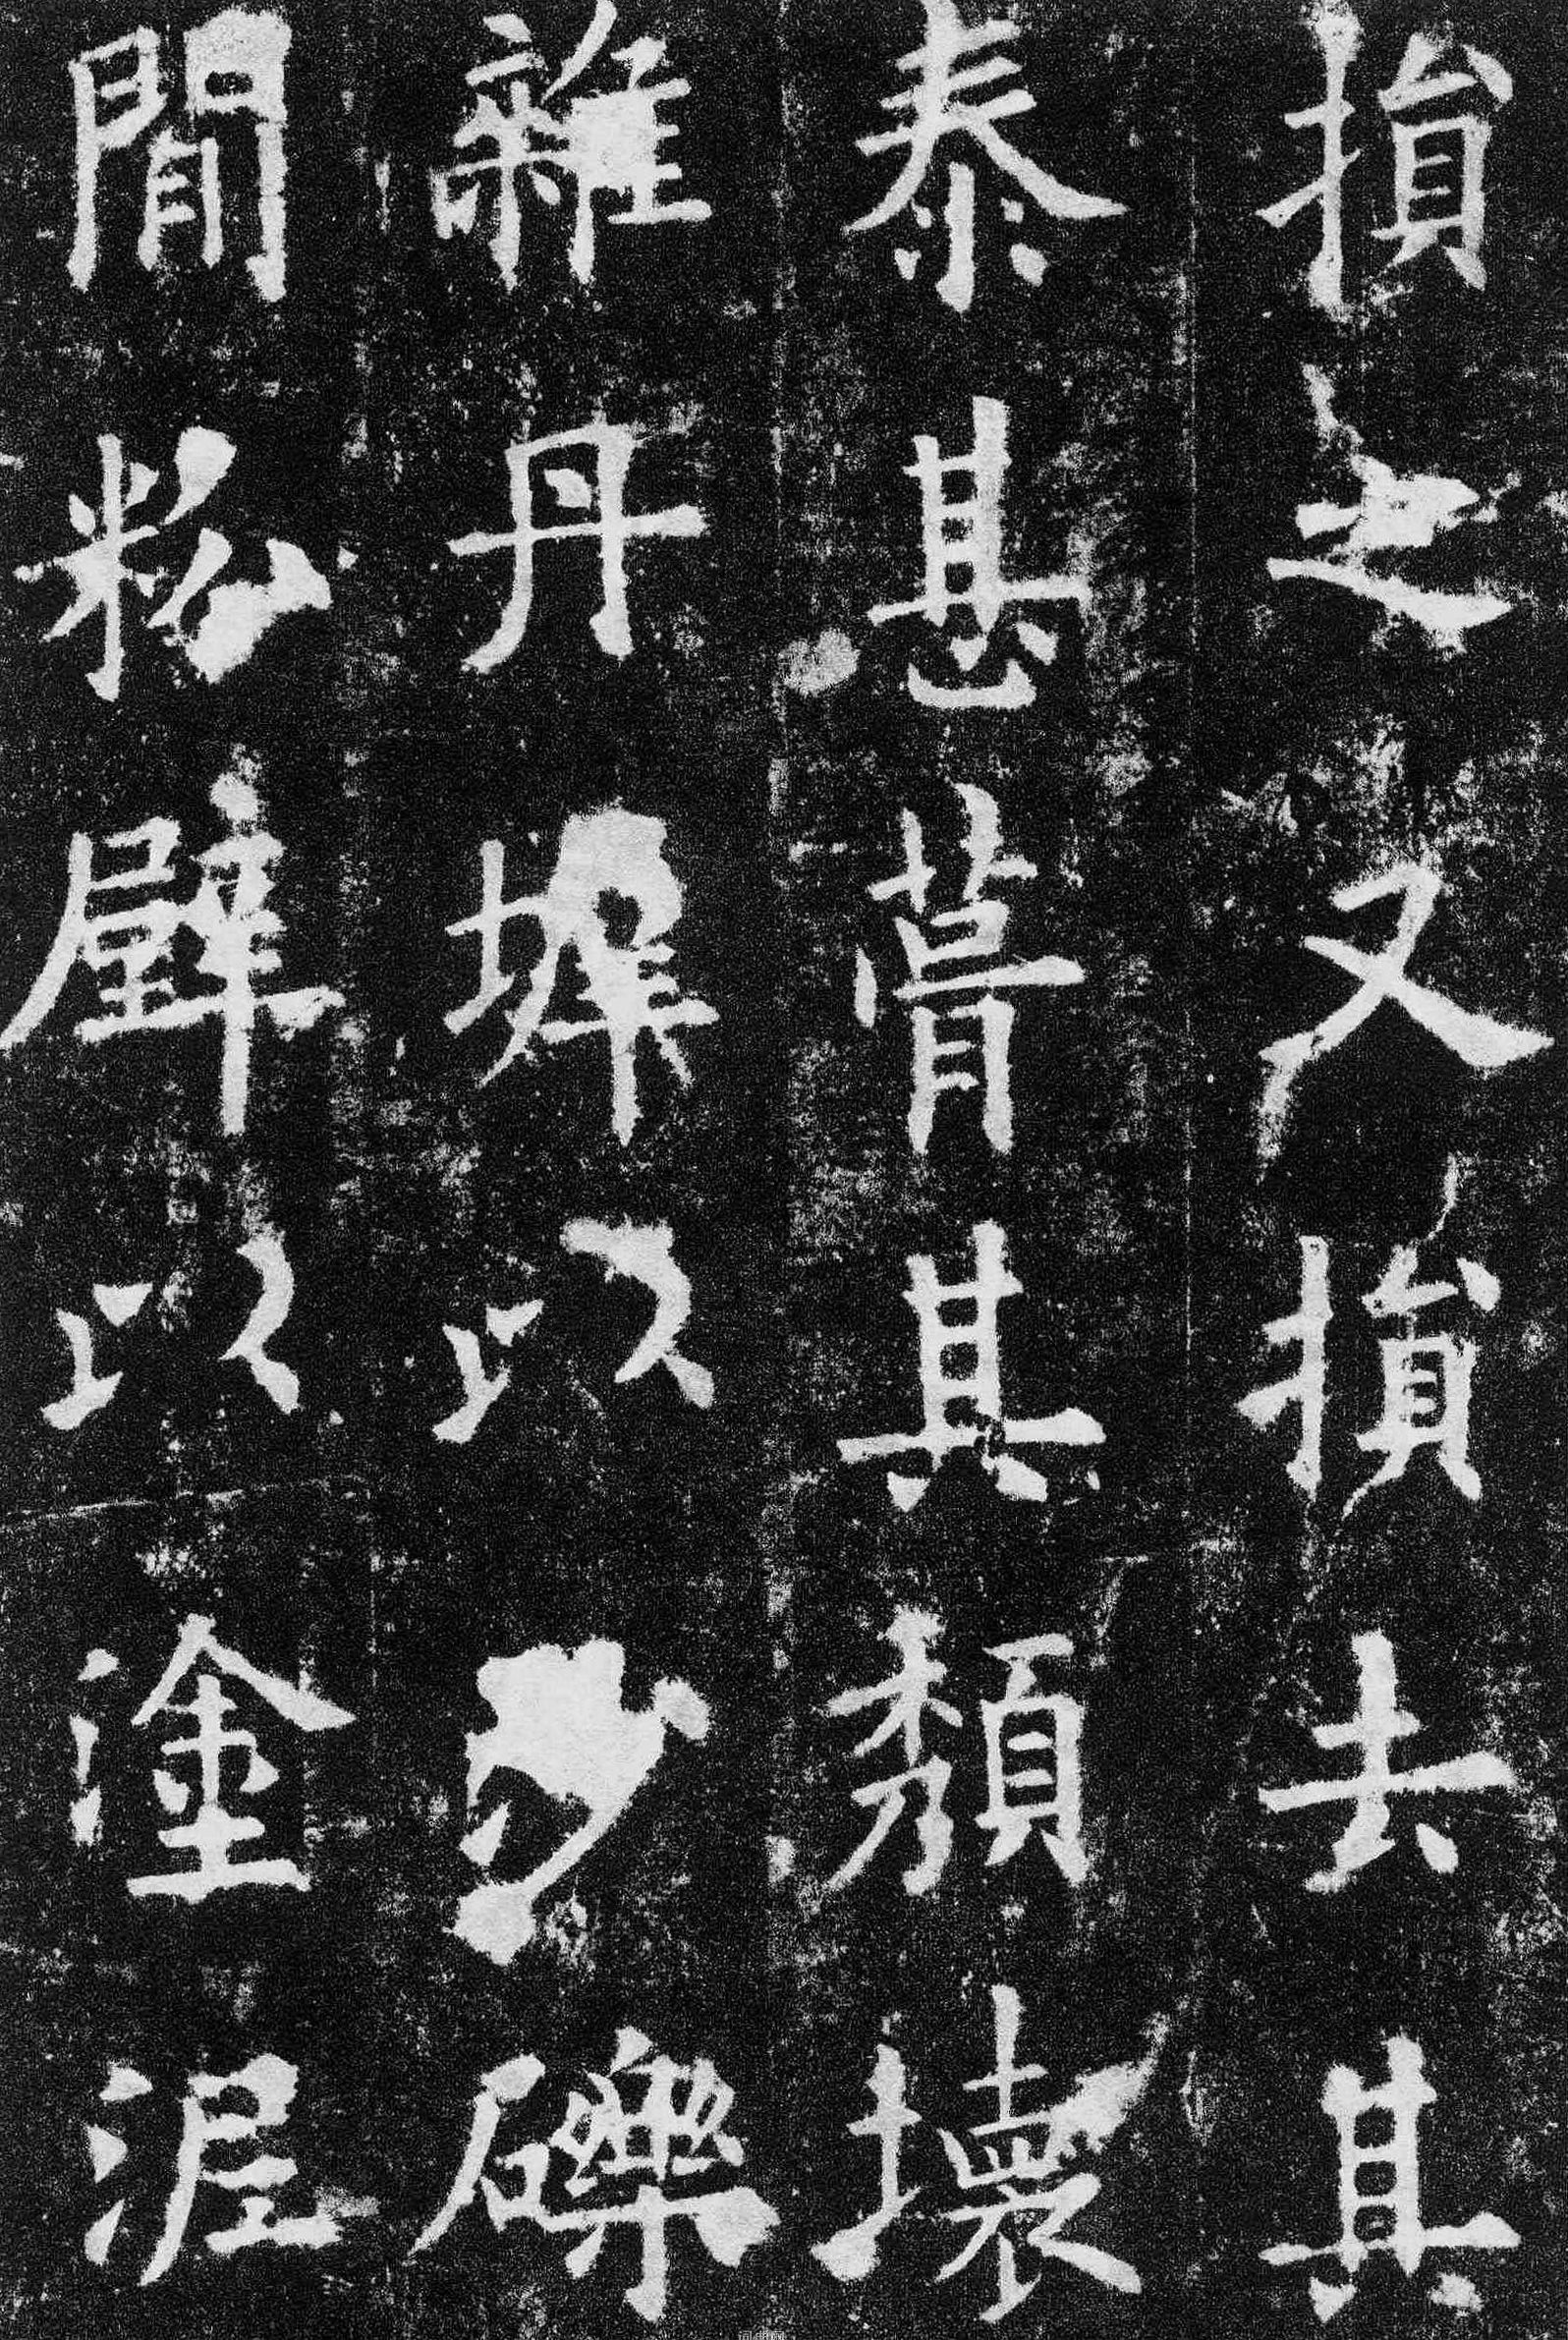 損之又損去其
泰甚葺其頽壞
雜丹墀以沙礫
間粉壁以塗泥